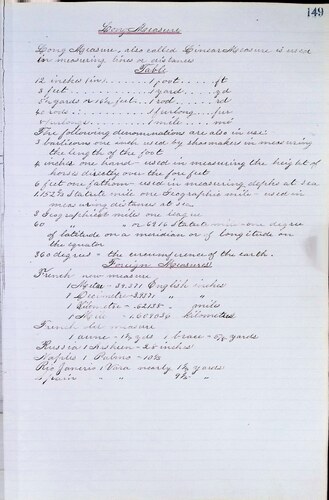 149
Long Measure
Long Measure, also called Linear Measure is used
in measuring lines or distances
Table
12 inches (in) . . . . 1 foot . . . . ft
3 feet . . . . 1 yard . . . . yd
5½ yards or 16½ feet . . 1 rod . . . . rd
40 rods . . . . 1 furlong . . fur
8 furlongs . . . . 1 mile . . . . mi
The following denominations are also in use:
3 barleycorns one inch used by shoemakers in measuring
the length of the foot
4 inches one hand - used in measuring the height of
horses directly over the fore feet
6 feet one fathom - used in measuring depths at sea
1.152⅔ statute mile one Geographic mile used in
measuring distances at sea.
3 Geographical miles one league
60 " " or 69.16 Statute mile - one degree
of latitude on a meridian or of longitude on
the equator
360 degrees - the circumference of the earth.
Foreign Measures
French new measure
1 Metre - 39.371 English inches
1 Decimetre - 3.9371 " "
1 Kilometer - .62138 miles
1 Mile - 1.609 kilometres
French old measure
1 aune - 1⅓ yds
Russia 1 Arsheen - 28 inches
Naples 1 Palmo - 10⅜
Rio Janeiro 1 Vara nearly 1¼ yards
Spain " "